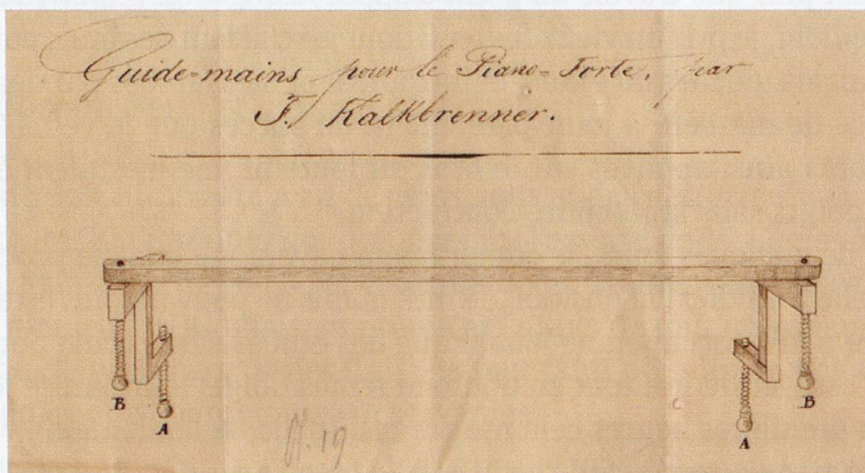 Guide-mains pour le Piano-Forte, par
F. Kalkbrenner.
B A A B